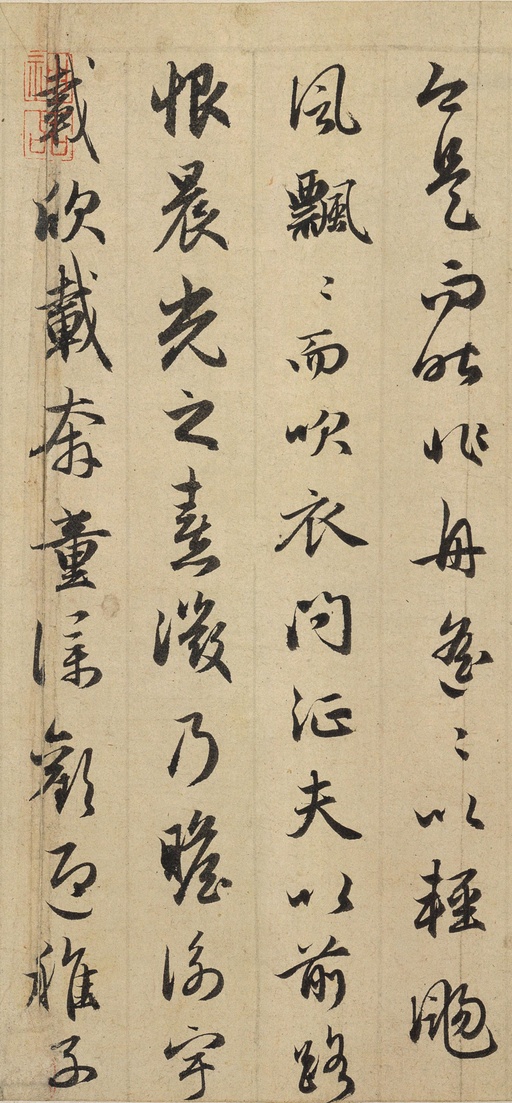 今是而昨非舟遙〻以輕颺
風飄〻而吹衣問征夫以前路
恨晨光之熹微乃瞻衡宇
載欣載奔童僕歡迎稚子